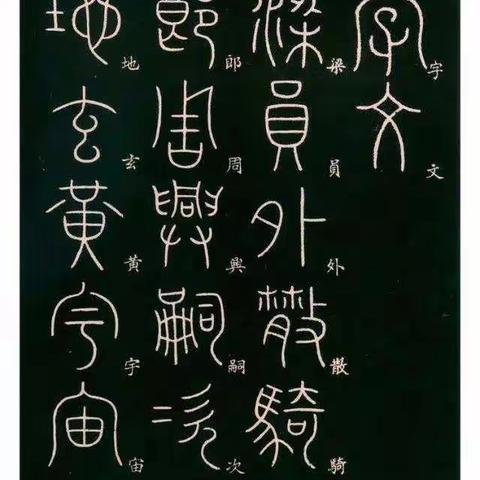 字文
字文
梁員外散騎
梁員外散騎
郎周興嗣次
郎周興嗣次
地玄黃宇宙
地玄黃宇宙